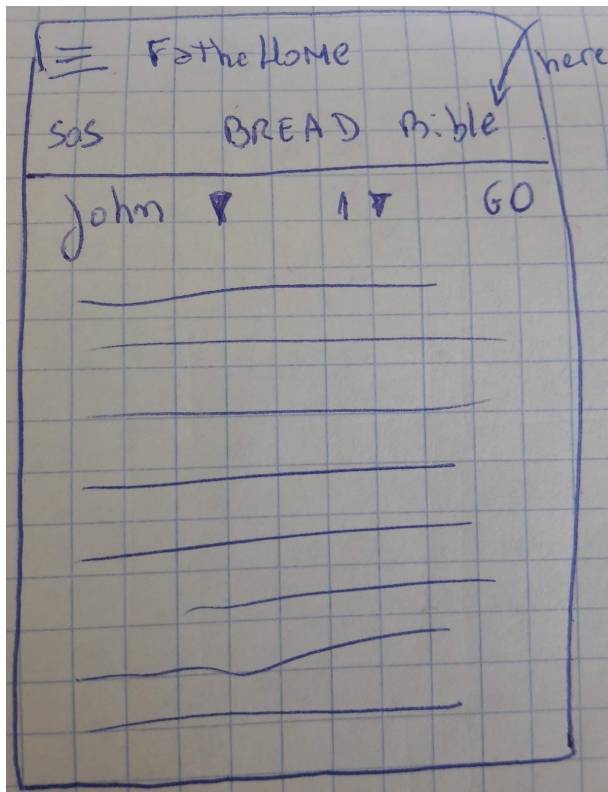 ☰ FatheHome
here
SOS BREAD Bible
John ▼ 1 ▼ GO